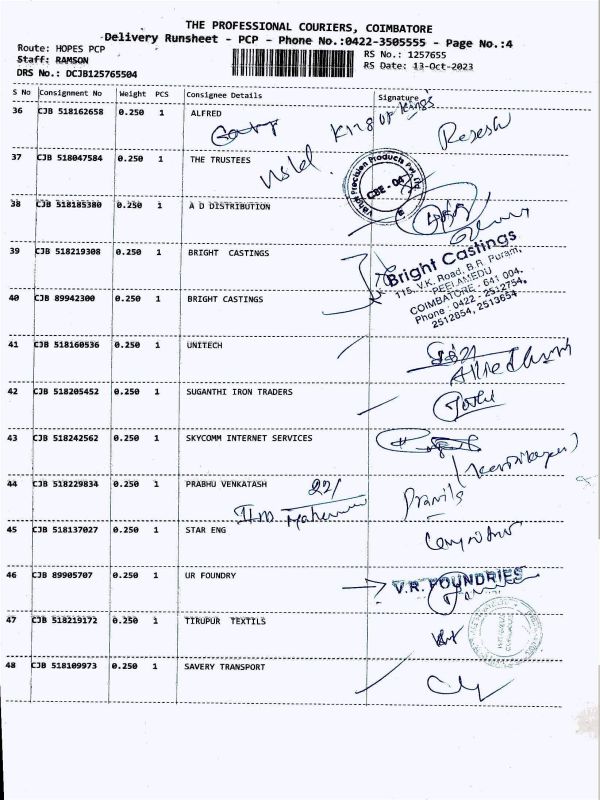 THE PROFESSIONAL COURIERS, COIMBATORE
Delivery Runsheet - PCP - Phone No.:0422-3505555 - Page No.:4
Route: HOPES PCP
RS No.: 1257655
Staff: RAMSON
RS Date: 13-Oct-2023
DRS No.: DCJB125765504
S No Consignment No Weight PCS Consignee Details Signature
36 CJB 518162658 0.250 1 ALFRED
King of Kings
37 CJB 518047584 0.250 1 THE TRUSTEES
Precision Products Pvt. Ltd.
CBE - 04
38 CJB 518185380 0.250 1 A D DISTRIBUTION
39 CJB 518219308 0.250 1 BRIGHT CASTINGS
Bright Castings
115, V.K. Road, B.R. Puram,
PEELAMEDU
COIMBATORE - 641 004.
Phone : 0422 - 2512754,
2512854, 2513654
40 CJB 89942300 0.250 1 BRIGHT CASTINGS
41 CJB 518160536 0.250 1 UNITECH
42 CJB 518205452 0.250 1 SUGANTHI IRON TRADERS
43 CJB 518242562 0.250 1 SKYCOMM INTERNET SERVICES
44 CJB 518229834 0.250 1 PRABHU VENKATASH
221
45 CJB 518137027 0.250 1 STAR ENG
46 CJB 89905707 0.250 1 UR FOUNDRY
V.R. FOUNDRIES
47 CJB 518219172 0.250 1 TIRUPUR TEXTILS
48 CJB 518109973 0.250 1 SAVERY TRANSPORT